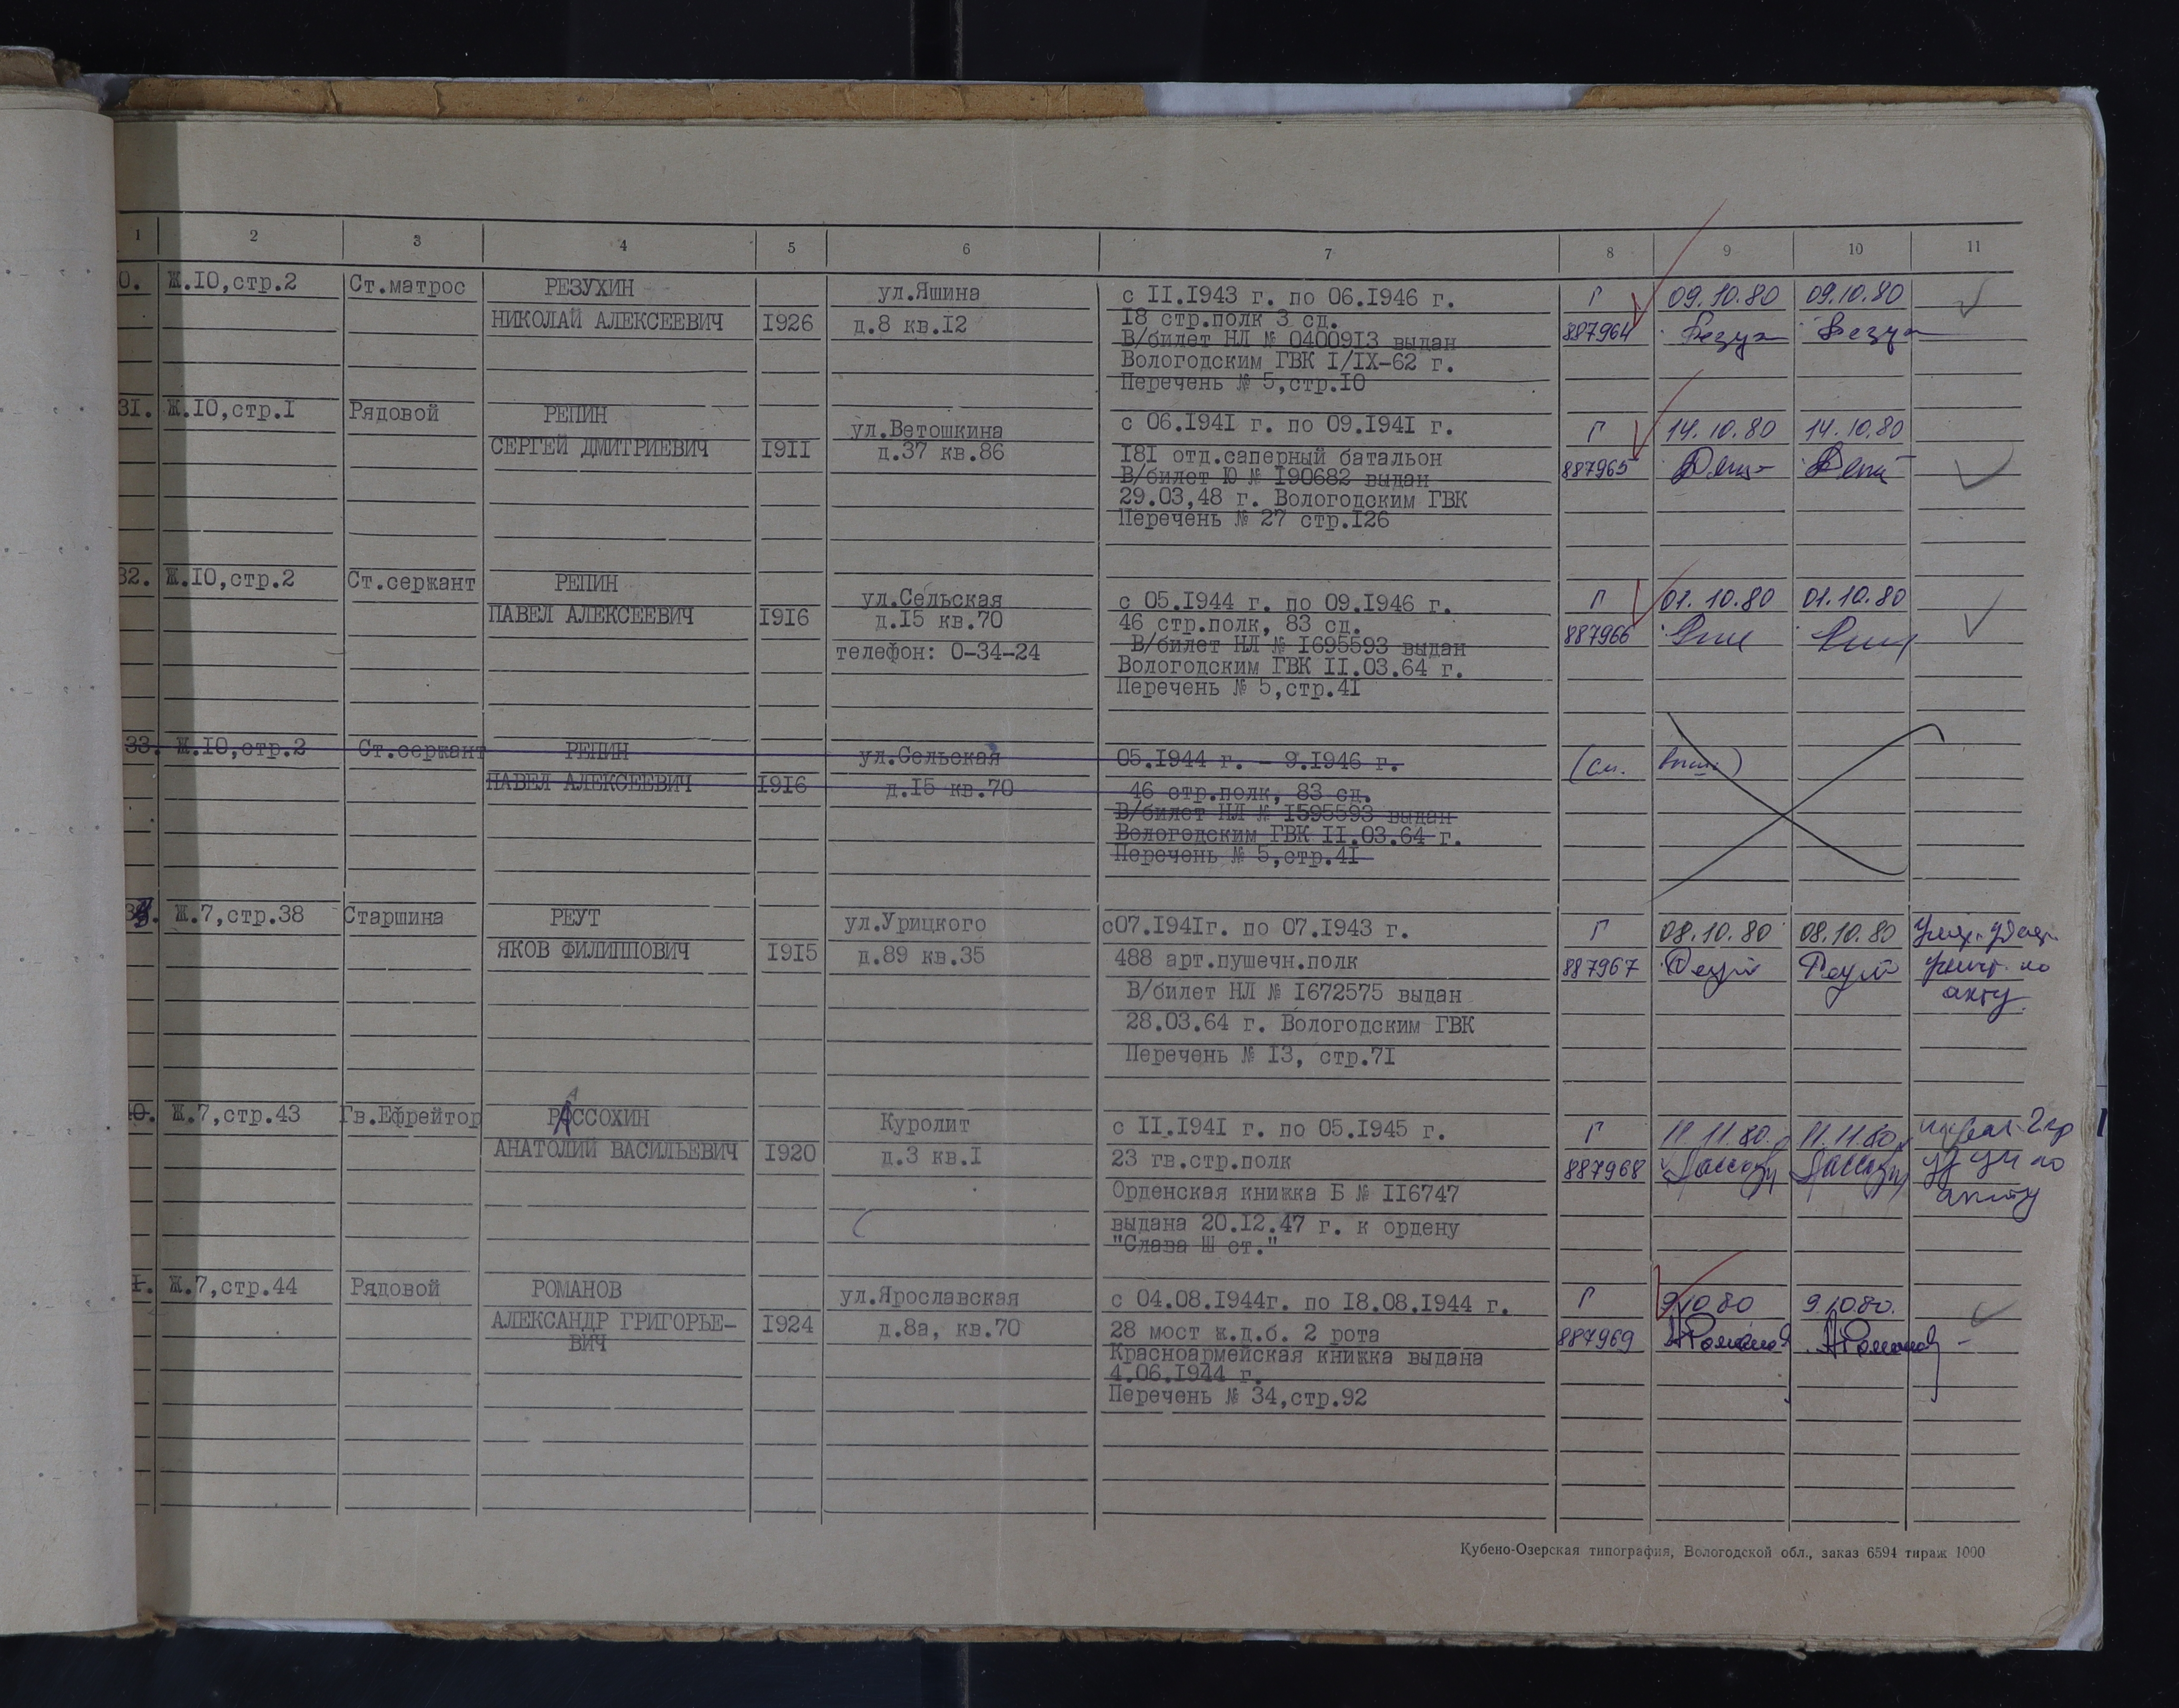 1 2 3 4 5 6 7 8 9 10 11
0. Ж.10,стр.2 Ст.матрос РЕЗУХИН ул.Яшина с II.1943 г. по 06.1946 г. Г 09.10.80 09.10.80
НИКОЛАЙ АЛЕКСЕЕВИЧ 1926 д.8 кв.12 18 стр.полк 3 сд. 887964 Резух Резух
В/билет НЛ № 0400913 выдан
Вологодским ГВК I/IX-62 г.
Перечень № 5,стр.10
31. Ж.10,стр.1 Рядовой РЕПИН ул.Ветошкина с 06.1941 г. по 09.1941 г. Г 14.10.80 14.10.80
СЕРГЕЙ ДМИТРИЕВИЧ 1911 д.37 кв.86 181 отд.саперный батальон 887965
В/билет Ю № 190682 выдан
29.03,48 г. Вологодским ГВК
Перечень № 27 стр.126
32. Ж.10,стр.2 Ст.сержант РЕПИН ул.Сельская с 05.1944 г. по 09.1946 г. Г 01.10.80 01.10.80
ПАВЕЛ АЛЕКСЕЕВИЧ 1916 д.15 кв.70 46 стр.полк, 83 сд. 887966
телефон: 0-34-24 В/билет НЛ № 1695593 выдан
Вологодским ГВК II.03.64 г.
Перечень № 5,стр.41
33. Ж.10,стр.2 Ст.сержант РЕПИН ул.Сельская 05.1944 г. - 9.1946 г. (см. выше)
ПАВЕЛ АЛЕКСЕЕВИЧ 1916 д.15 кв.70 46 стр.полк, 83 сд.
В/билет НЛ № 1595593 выдан
Вологодским ГВК II.03.64 г.
Перечень № 5,стр.41
Ж.7,стр.38 Старшина РЕУТ ул.Урицкого с07.1941г. по 07.1943 г. Г 08.10.80 08.10.80
ЯКОВ ФИЛИППОВИЧ 1915 д.89 кв.35 488 арт.пушечн.полк 887967 Реут Реут по
В/билет НЛ № 1672575 выдан акту
28.03.64 г. Вологодским ГВК
Перечень № 13, стр.71
Ж.7,стр.43 Гв.Ефрейтор РАССОХИН Куролит с II.1941 г. по 05.1945 г. Г 11.11.80. 11.11.80
АНАТОЛИЙ ВАСИЛЬЕВИЧ 1920 д.3 кв.1 23 гв.стр.полк 887968 по
Орденская книжка Б № 116747 акту
выдана 20.12.47 г. к ордену
"Слава Ш ст."
Ж.7,стр.44 Рядовой РОМАНОВ ул.Ярославская с 04.08.1944г. по 18.08.1944 г. Г 9.10.80 9.10.80.
АЛЕКСАНДР ГРИГОРЬЕ- 1924 д.8а, кв.70 28 мост ж.д.б. 2 рота 887969 АРоманов АРоманов
ВИЧ Красноармейская книжка выдана
4.06.1944 г.
Перечень № 34,стр.92
Кубено-Озерская типография, Вологодской обл., заказ 6594 тираж 1000